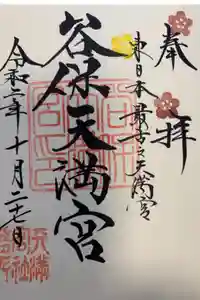 奉拝
東日本最古之天満宮
谷保天満宮
令和二年十月二十七日